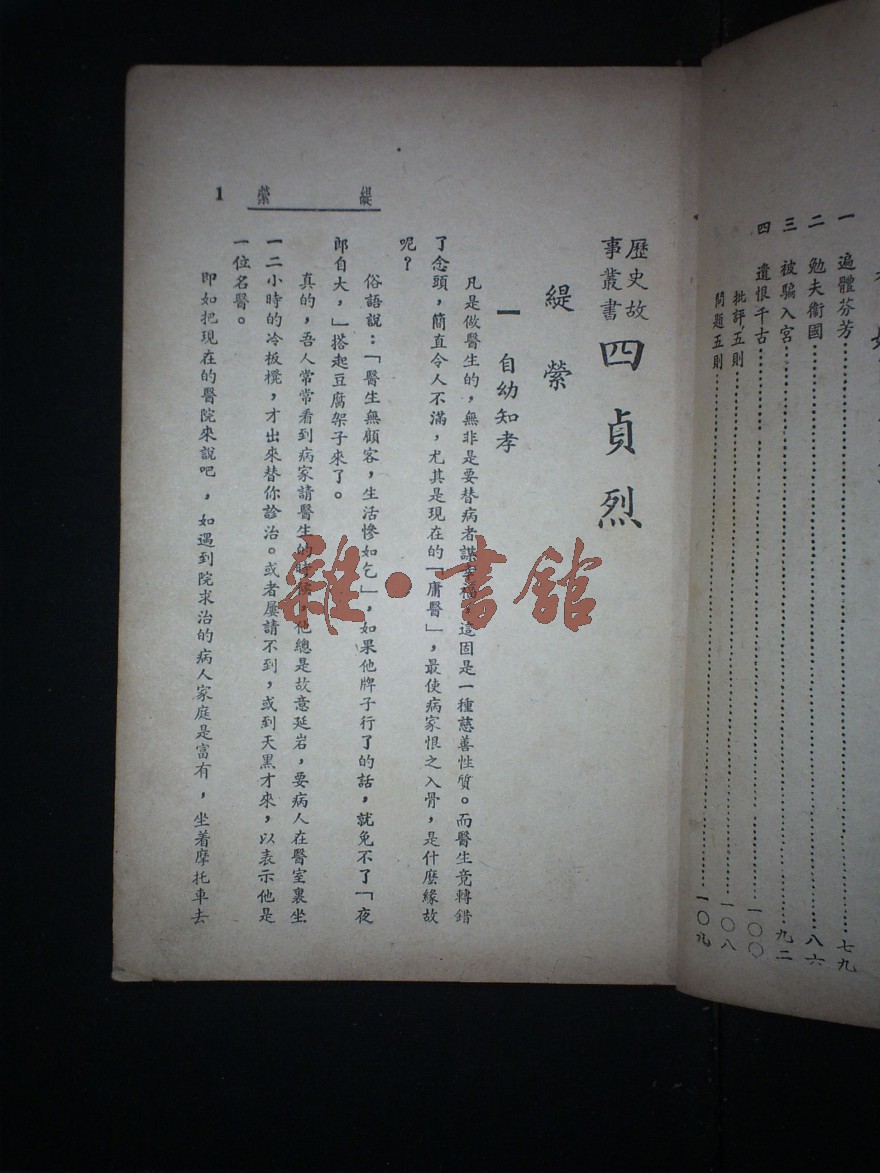 一 遍體芬芳……七九
二 勉夫衞國……八六
三 被騙入宮……九二
四 遺恨千古……一〇〇
批評五則……一〇八
問題五則……一〇九
緹縈
1
歷史故事叢書 四貞烈
緹縈
一 自幼知孝
凡是做醫生的，無非是要替病者謀幸福，這固是一種慈善性質。而醫生竟轉錯
了念頭，簡直令人不滿，尤其是現在的「庸醫」，最使病家恨之入骨，是什麼緣故
呢？
俗語說：「醫生無顧客，生活慘如乞」，如果他牌子行了的話，就免不了「夜
郎自大，」搭起豆腐架子來了。
真的，吾人常常看到病家請醫生的時候，他總是故意延岩，要病人在醫室裏坐
一二小時的冷板櫈，才出來替你診治。或者屢請不到，或到天黑才來，以表示他是
一位名醫。
即如把現在的醫院來說吧，如遇到院求治的病人家庭是富有，坐着摩托車去
雜·書舘